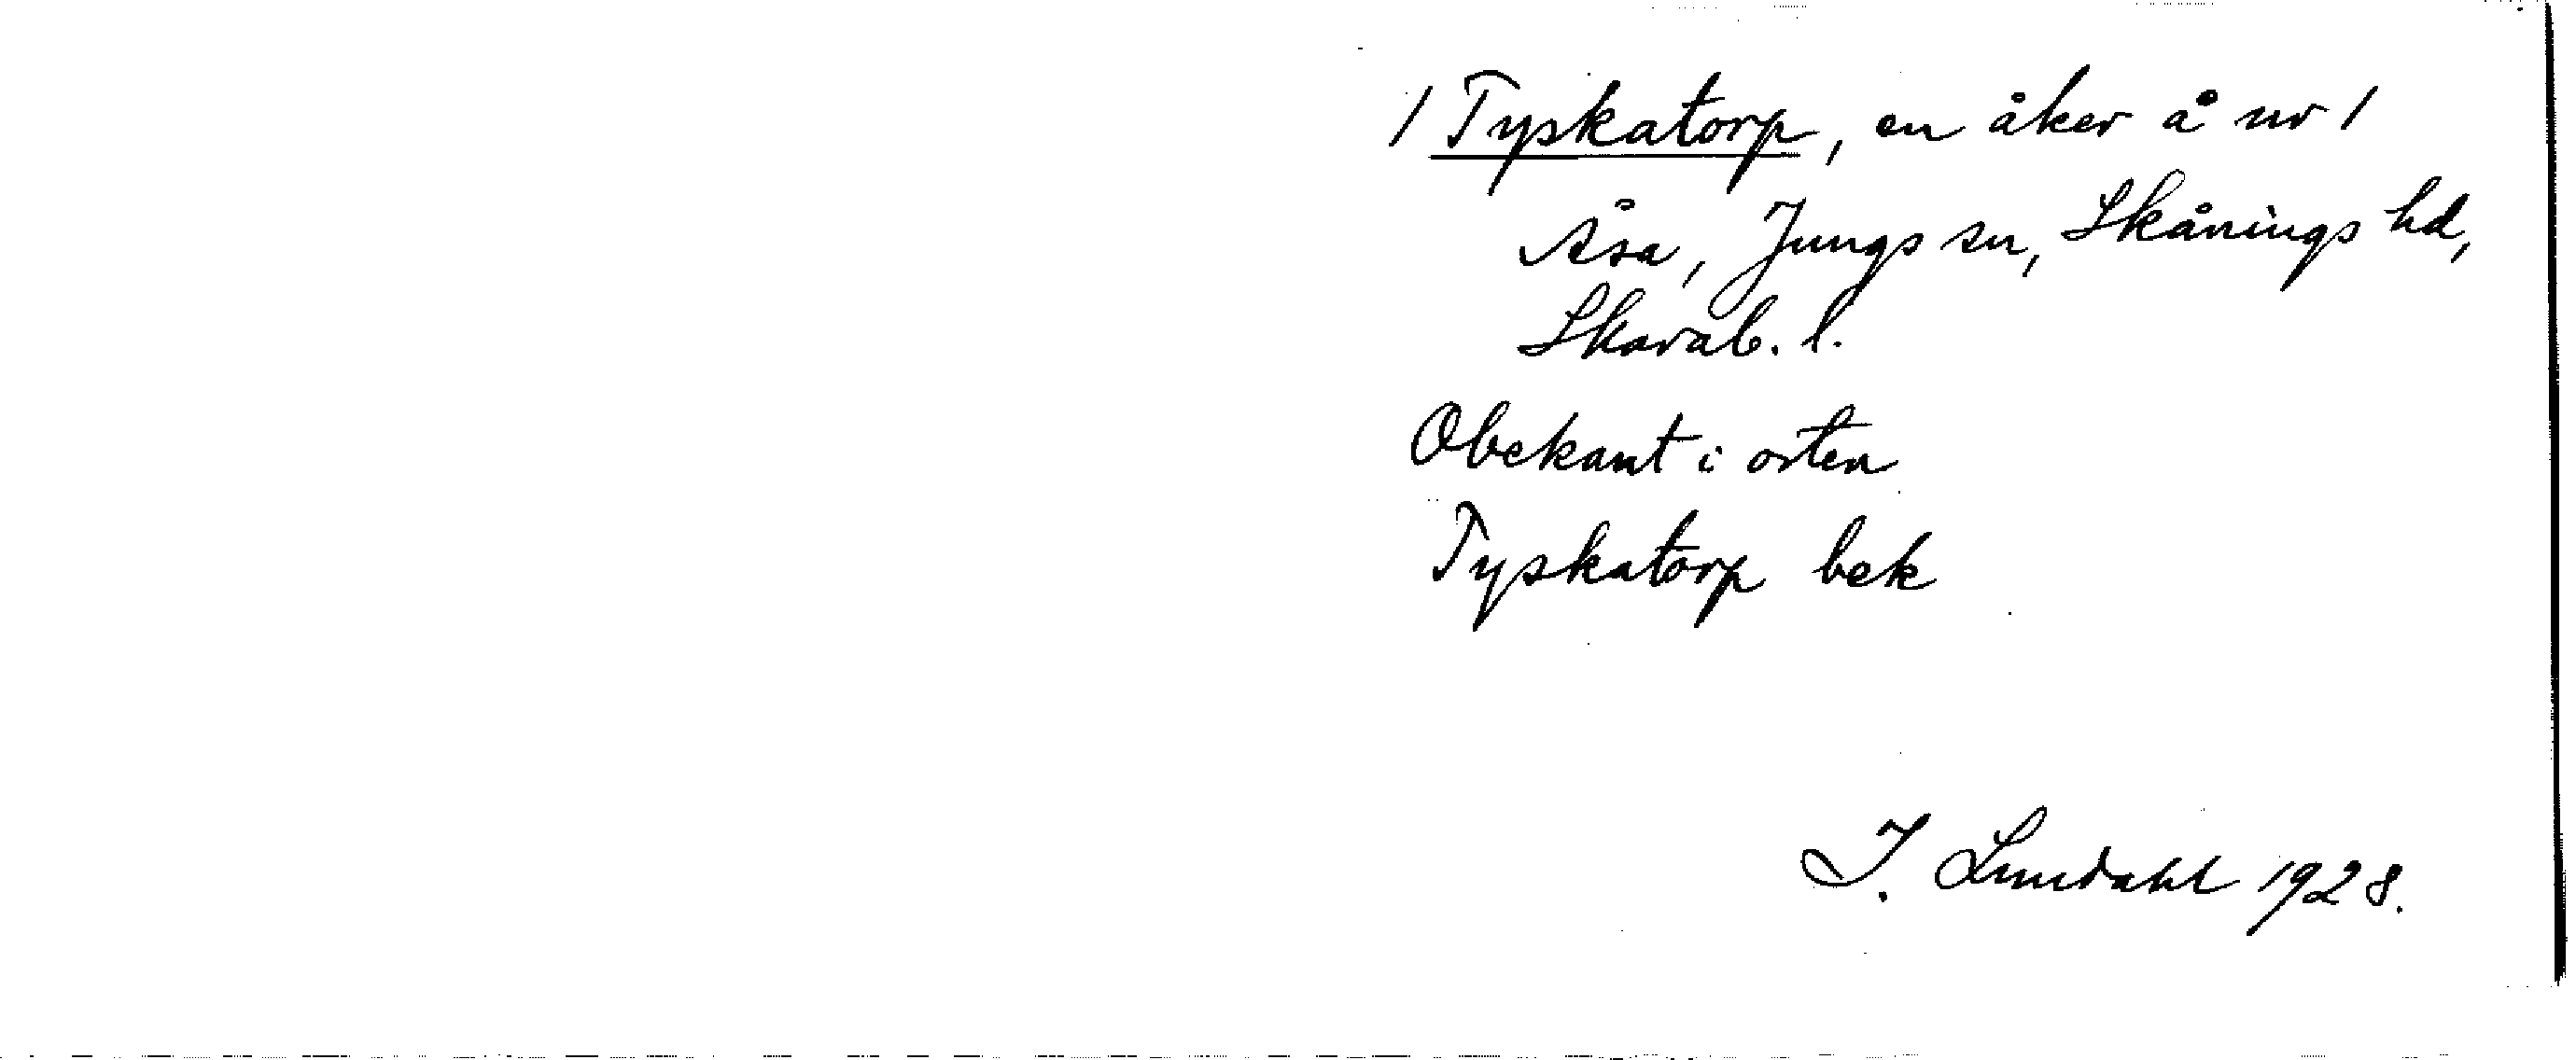 / Tyskatorp, en åker å nr 1
Åsa, Jungs sn, Skånings hd,
Skarab. l.
Obekant i orten
Tyskatorp bek
I. Lundahl 1928.